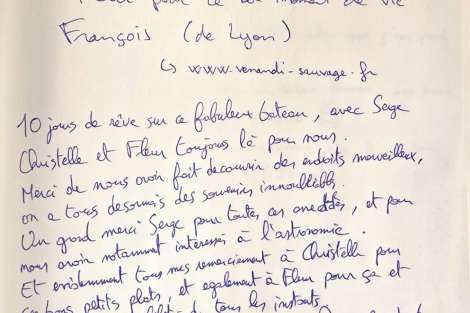 pour ce bon moment de vie
François (de Lyon)
↳ www.venandi-sauvage.fr
10 jours de rêve sur ce fabuleux bateau, avec Serge
Christelle et Fleur toujours là pour nous.
Merci de nous avoir fait decouvrir des endroits merveilleux,
on a tous desormais des souvenirs
Un grand merci Serge pour toutes ces anecdotes, et pour
nous avoir notamment interessés à l'astronomie.
Et evidemment tous mes remerciement à Christelle pour
ces bons petits plats, et egalement à Fleur pour ça et
de tous les instants.